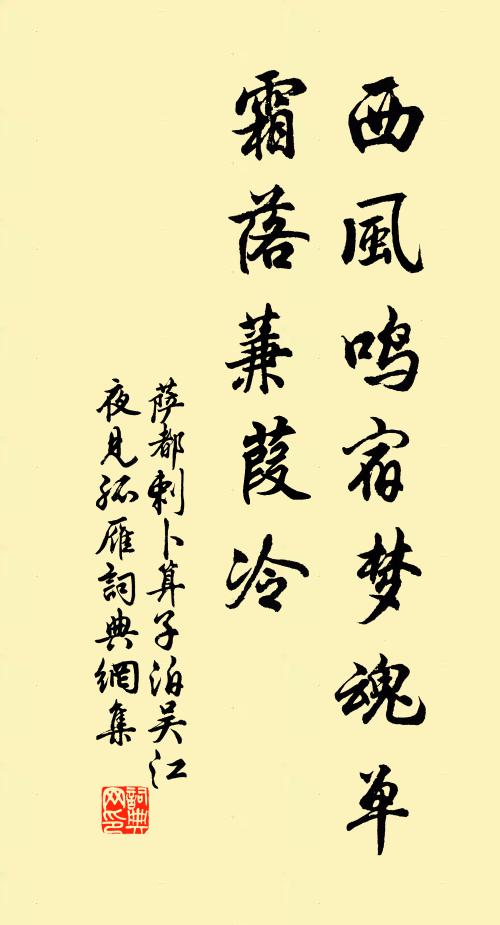 西風鸣宿梦魂单
霜落蒹葭冷
萨都剌卜算子泊吴江
夜見孤雁詞典網集
詞典
网印